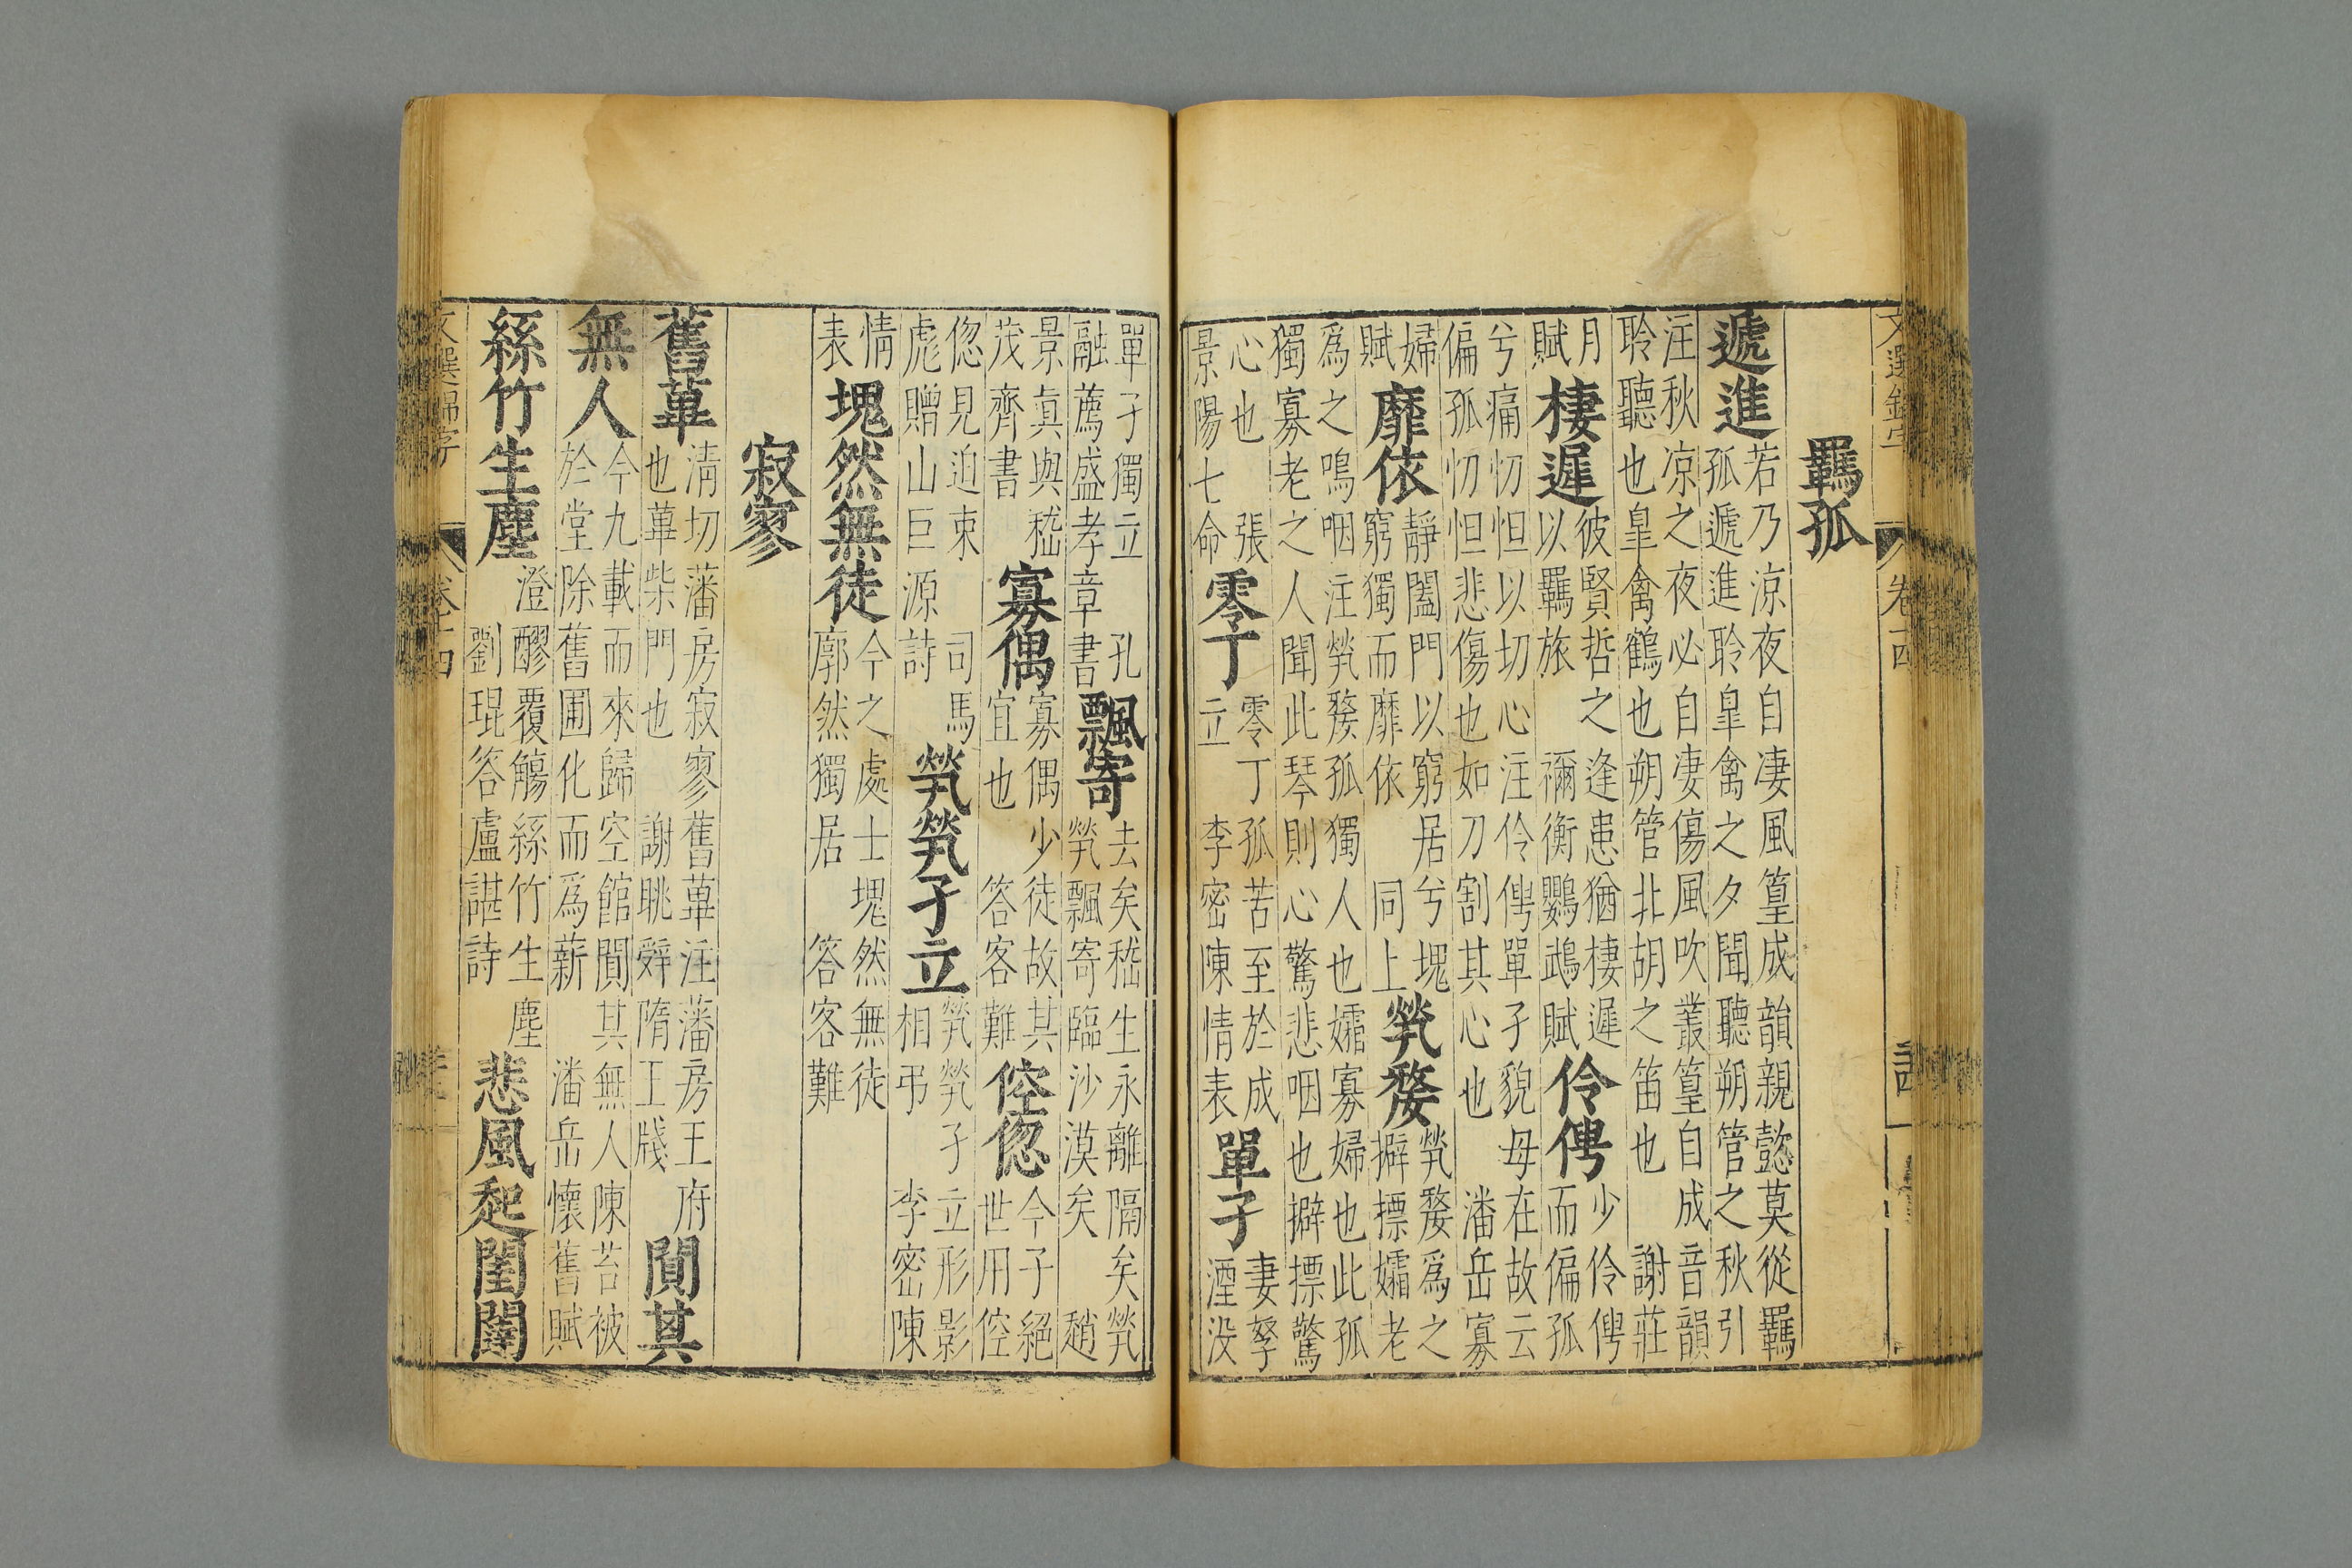 文選錦字 卷十四
羈孤
遞進 若乃涼夜自凄風篁成韻親懿莫從羈
孤遞進聆臯禽之夕聞聽朔管之秋引
注秋凉之夜必自凄傷風吹叢篁自成音韻
聆聽也臯禽鶴也朔管北胡之笛也 謝莊
月賦 棲遲 彼賢哲之逢患猶棲遲以羈旅 禰衡鸚鵡賦 伶俜 少伶俜而偏孤
兮痛忉怛以切心注伶俜單孑貌母在故云
偏孤忉怛悲傷也如刀割其心也 潘岳寡
婦賦 靡依 靜闔門以窮居兮塊窮獨而靡依 同上 煢嫠 煢嫠爲之擗摽孀老
爲之鳴咽注煢嫠孤獨人也孀寡婦也此孤
獨寡老之人聞此琴則心驚悲咽也擗摽驚
心也 張景陽七命 零丁 零丁孤苦至於成立 李密陳情表 單孑 妻孥湮没
單孑獨立 孔融薦盛孝章書 飄寄 去矣嵇生永離隔矣煢煢飄寄臨沙漠矣 趙
景真與嵇茂齊書 寡偶 寡偶少徒故其宜也 答客難 倥偬 今子絕世用倥
偬見迫束 司馬彪贈山巨源詩 煢煢孑立 煢煢孑立形影相弔 李密陳
情表 塊然無徒 今之處士塊然無徒廓然獨居 答客難
寂寥
舊蓽 清切藩房寂寥舊蓽注藩房王府也蓽柴門也 謝眺辤隋王牋 閴其
無人 今九載而來歸空館閴其無人陳苔被於堂除舊圃化而爲薪 潘岳懷舊賦
絲竹生塵 澄醪覆觴絲竹生塵 劉琨答盧諶詩 悲風起閨闥
文選錦字 卷十四